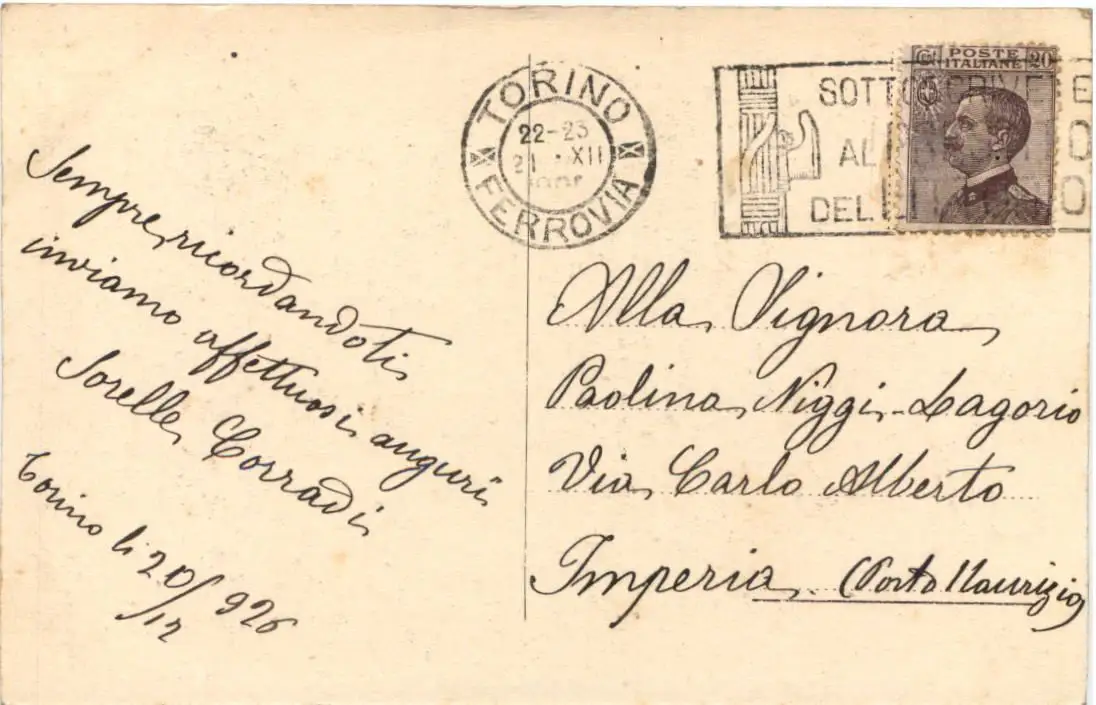 Sempre ricordandoti
inviamo affettuosi auguri
Sorelle Corradi
Torino li 20/12 926
TORINO
22-23
21 XII
FERROVIA
SOTTO
AL
DEL
POSTE
ITALIANE
20
Alla Signora
Paolina Niggi-Lagorio
Via Carlo Alberto
Imperia (Porto Maurizio)